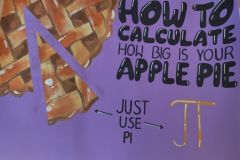 HOW TO
CALCULATE
HOW BIG IS YOUR
APPLE PIE
JUST
USE
PI
π